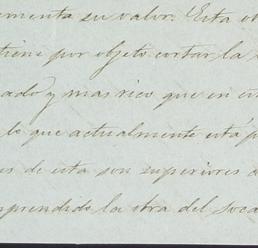 ementa su valor. Esta ob
tiene por objeto cortar la
ado y mas rico que en
lo que actualmente está p
es de esta son superiores a
mprendido la obra del soca